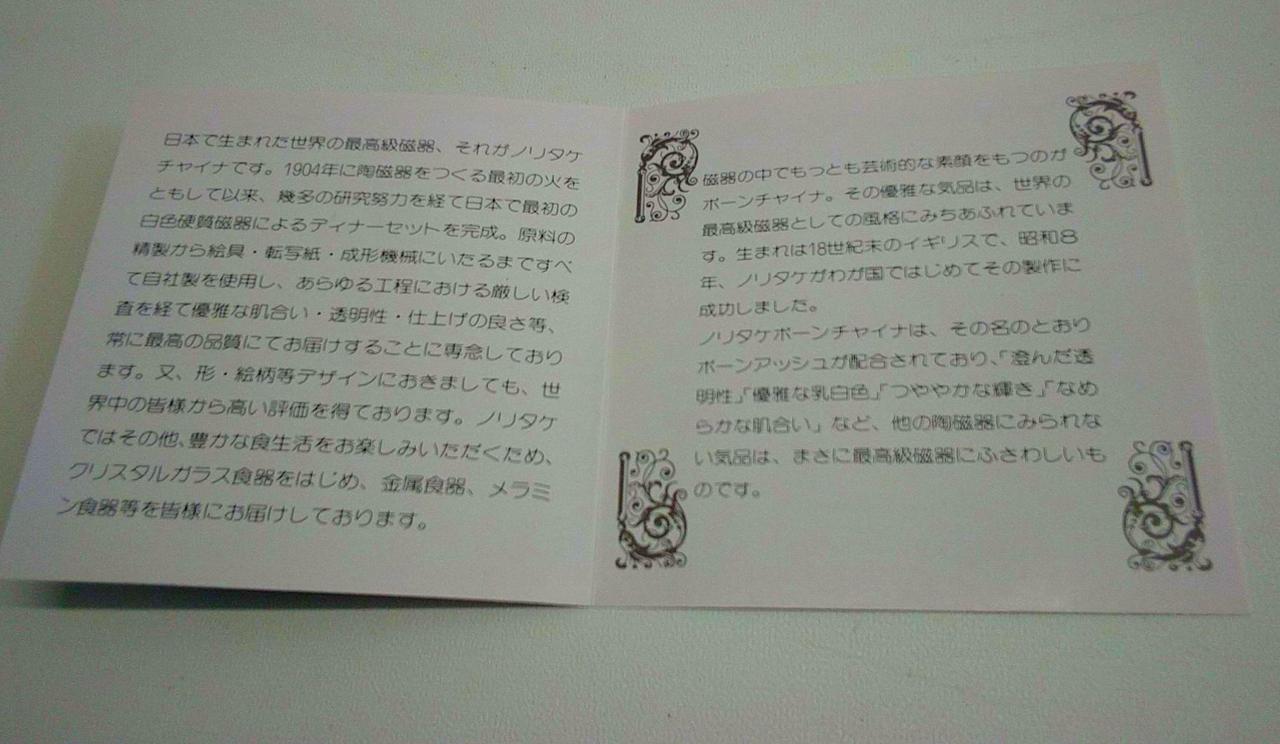 日本で生まれた世界の最高級磁器、それがノリタケ
チャイナです。1904年に陶磁器をつくる最初の火を
ともして以来、幾多の研究努力を経て日本で最初の
白色硬質磁器によるディナーセットを完成。原料の
精製から絵具・転写紙・成形機械にいたるまですべ
て自社製を使用し、あらゆる工程における厳しい検
査を経て優雅な肌合い・透明性・仕上げの良さ等、
常に最高の品質にてお届けすることに専念しており
ます。又、形・絵柄等デザインにおきましても、世
界中の皆様から高い評価を得ております。ノリタケ
ではその他、豊かな食生活をお楽しみいただくため、
クリスタルガラス食器をはじめ、金属食器、メラミ
ン食器等を皆様にお届けしております。
磁器の中でもっとも芸術的な素顔をもつのが
ボーンチャイナ。その優雅な気品は、世界の
最高級磁器としての風格にみちあふれていま
す。生まれは18世紀末のイギリスで、昭和8
年、ノリタケがわが国ではじめてその製作に
成功しました。
ノリタケボーンチャイナは、その名のとおり
ボーンアッシュが配合されており、「澄んだ透
明性」「優雅な乳白色」「つややかな輝き」「なめ
らかな肌合い」など、他の陶磁器にみられな
い気品は、まさに最高級磁器にふさわしいも
のです。